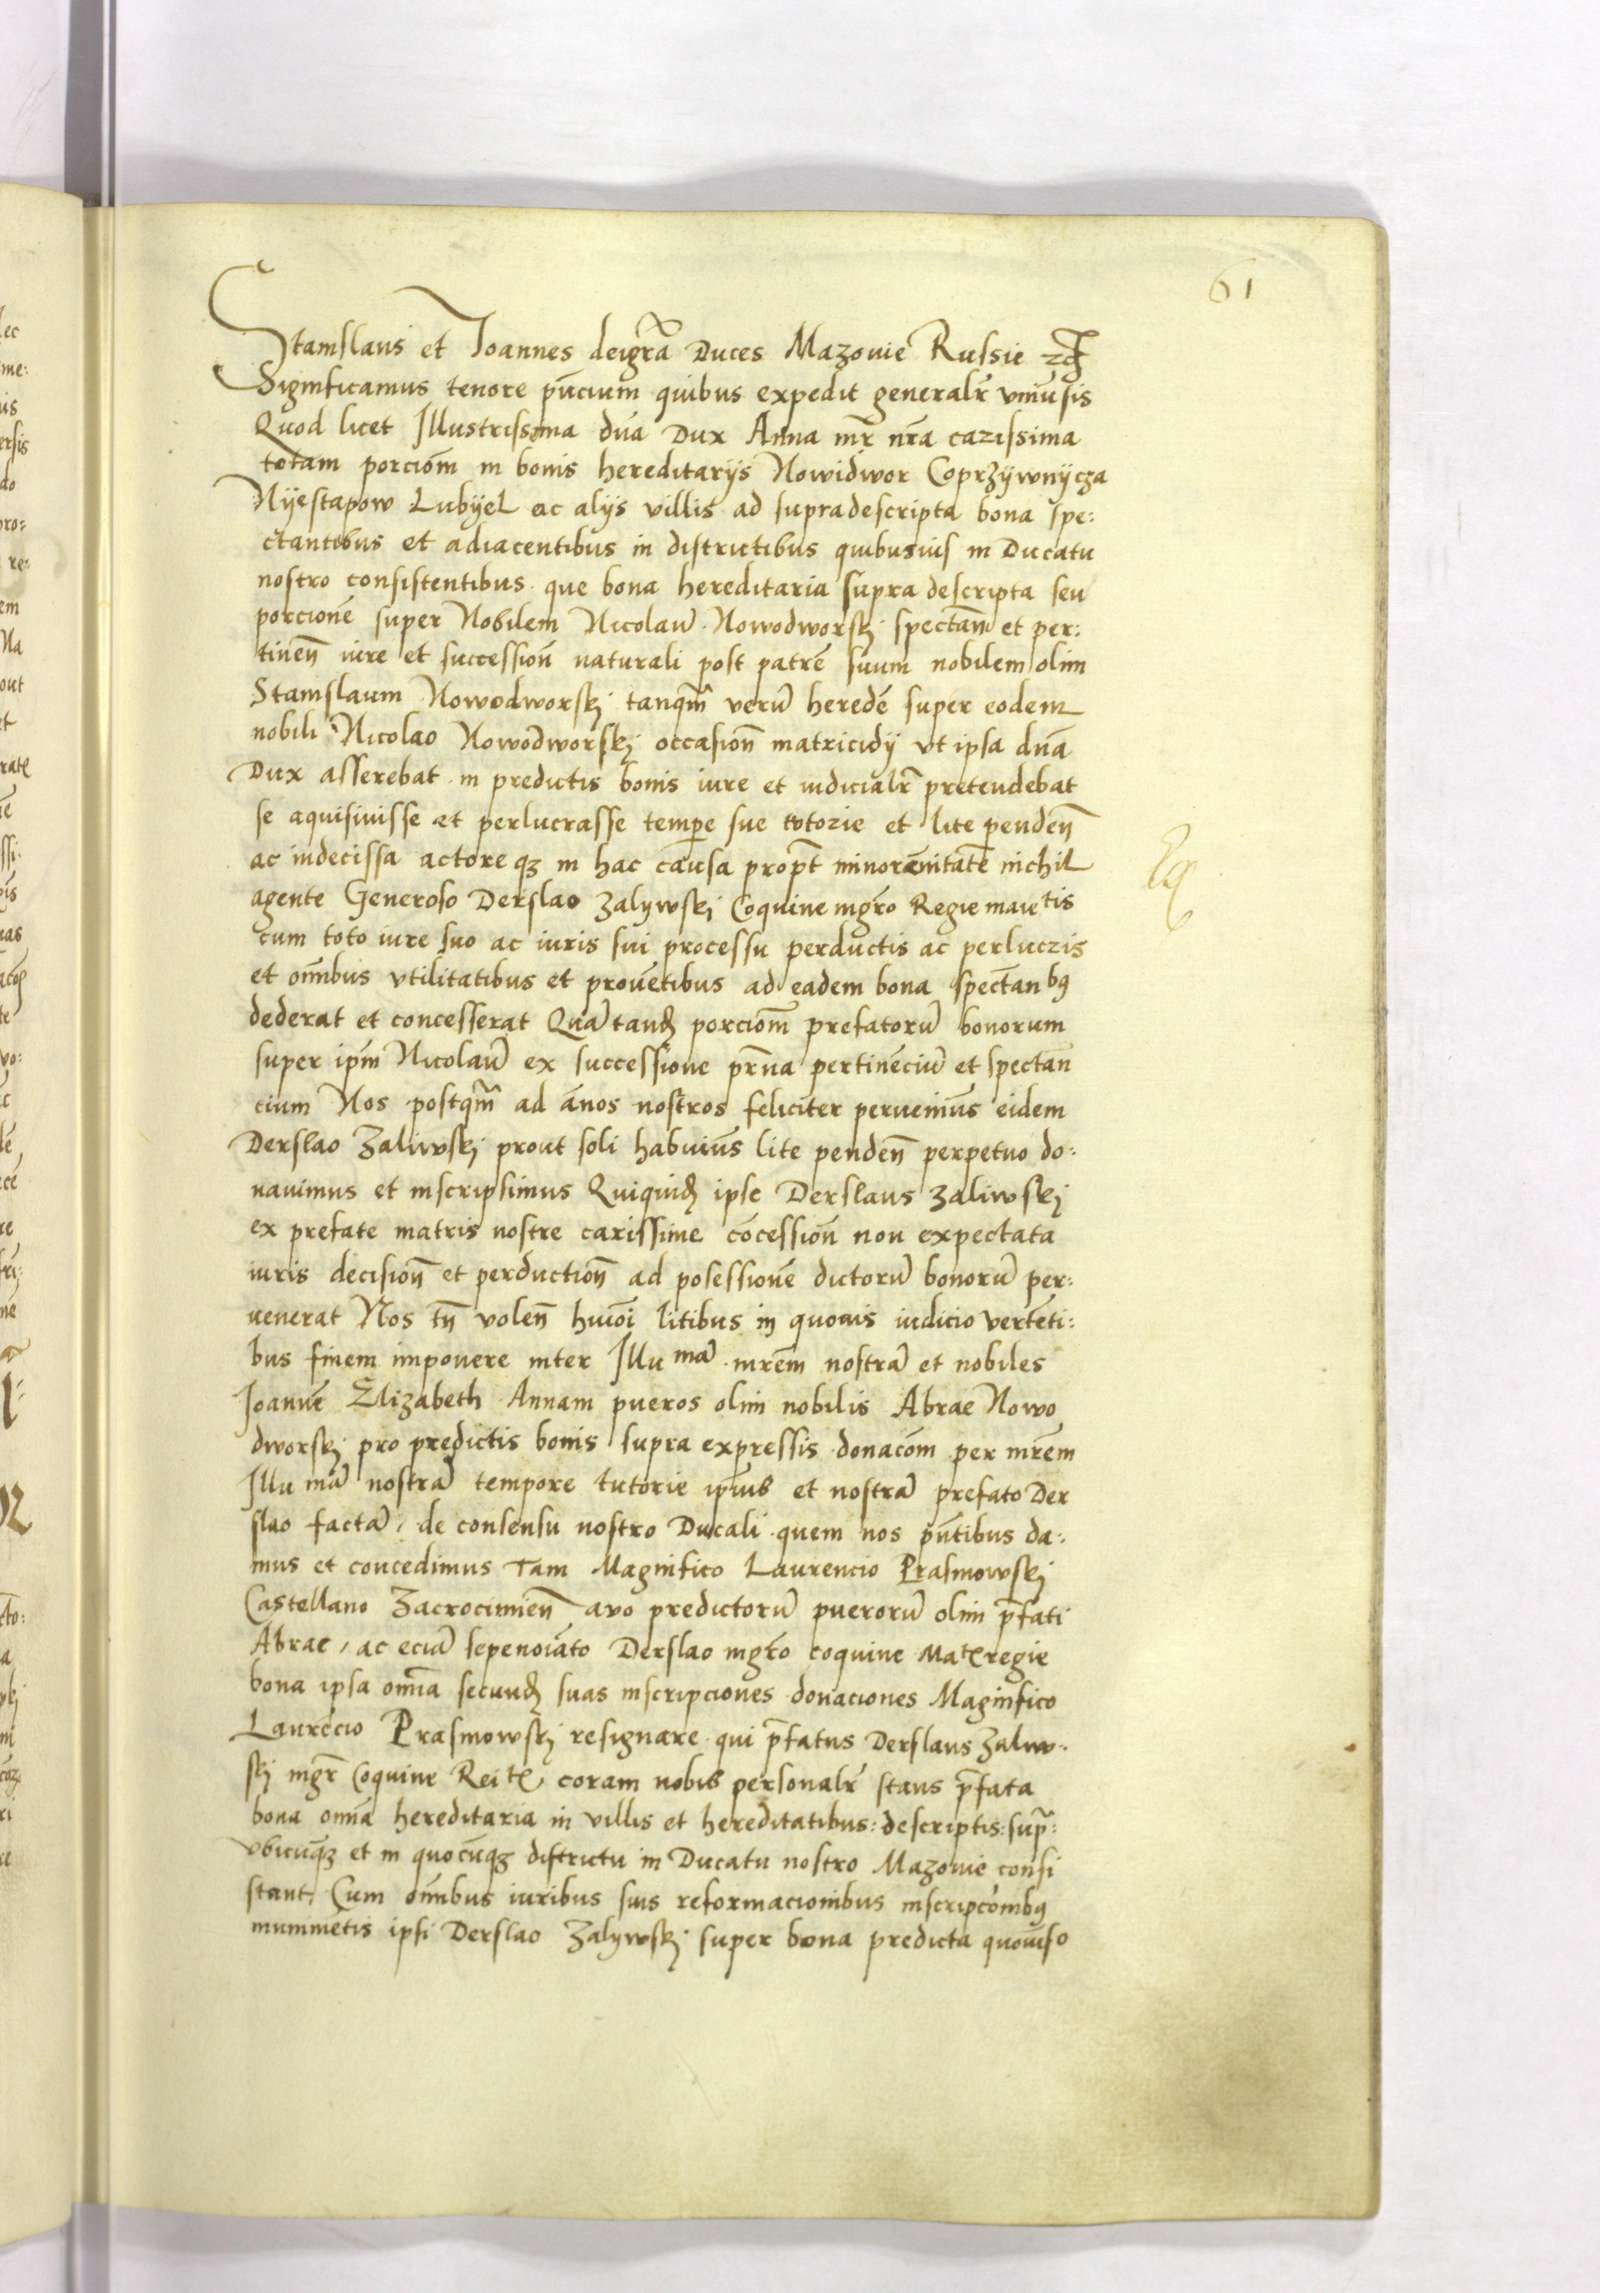 61
Stanislaus et Joannes deigrā Duces Mazovie Russie
Significamus tenore pn̄cium quibus expedit generalr̄ vniūsis
Quod licet Illustrissima dn̄a Dux Anna mr̄ nr̄a carissima
totam porciōm in bonis hereditarijs Nowidwor Coprzÿwnÿcza
Nÿestapow Lubÿel ac alijs villis ad supradescripta bona spe:
ctantibus et adiacentibus in districtibus quibusuis in Ducatu
nostro consistentibus que bona hereditaria supra descripta seu
porcionē super Nobilem Nicolaū Nowodworskj spectan̄ et per:
tinen̄ iure et succession̄ naturali post patrē suum nobilem olim
Stanislaum Nowodworskj tanqm̄ verū heredē super eodem
nobili Nicolao Nowodworskj occasion̄ matricidij vt ipsa dn̄a
Dux asserebat in predictis bonis iure et iudicialr̄ pretendebat
se aquisiuisse et perlucrasse tempe̱ sue totorie et lite penden̄
ac indecissa actore qꝫ in hac causa propt̄ minorēnitatē nichil
agente Generoso Derslao Zalywskj Coquine mgr̄o Regie maietis
cum toto iure suo ac iuris sui processu perductis ac perluczis
et om̄ibus vtilitatibus et prouētibus ad eadem bona spectan̄bꝰ
dederat et concesserat Quā tandꝫ porciom̄ prefatorū bonorum
super ip̄m Nicolaū ex successione pr̄na pertinēciū et spectan
cium Nos postqm̄ ad ān̄os nostros feliciter peruenim̄s eidem
Derslao Zaliwskj prout soli habuim̄s lite penden̄ perpetuo do:
nauimus et inscripsimus Quiquidꝫ ipse Derslaus Zaliwskj
ex prefate matris nostre carissime cōcession̄ non expectata
iuris decision̄ et perduction̄ ad posessionē dictorū bonorū per:
uenerat Nos tn̄ volen̄ huiōi litibus in quouis iudicio vertēti:
bus finem imponere inter Illu mā mrēm nostrā et nobiles
Joannē Elizabeth Annam pueros olim nobilis Abrae Nowo
dworskj pro predictis bonis supra expressis donacōm per mrēm
Illu mā nostrā tempore tutorie ip̄ius et nostrā prefato Der
slao factā, de consensu nostro Ducali quem nos pn̄tibus da:
mus et concedimus Tam Magnifico Laurencio Prasmowskj
Castellano Zacrocimien̄ avo predictorū puerorū olim p̄fati
Abrae, ac eciā sepenoiāto Derslao mgr̄o coquine Matꝭ regie
bona ipsa om̄ia secundꝫ suas inscripciones donaciones Maginfico
Laurēcio Prasmowskj resignare qui p̄fatus Derslaus Zaliw:
skj mgr̄ Coquine Rei tꝭ coram nobis personalr̄ stans p̄fata
bona om̄ia hereditaria in villis et hereditatibus: descriptis: supr̄:
vbicunqꝫ et in quocūqꝫ districtu in Ducatu nostro Mazovie consi
stant, Cum om̄ibus iuribus suis reformacionibus inscripcōnibꝰ
munimētis ipsi Derslao Zalywskj super bona predicta quouiso